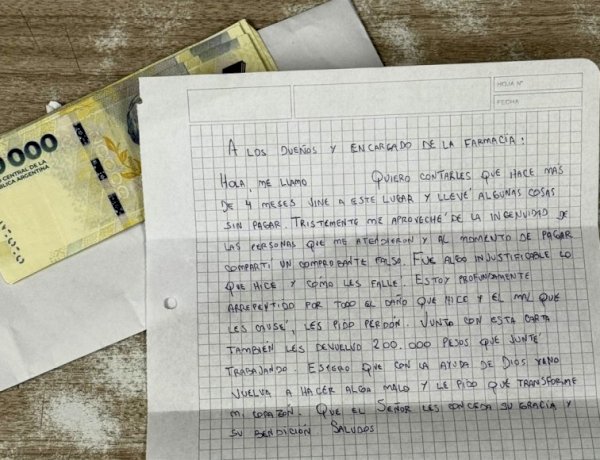 0000
O CENTRAL DE LA
PÚBLICA ARGENTINA
HOJA Nº
FECHA
A LOS DUEÑOS Y ENCARGADO DE LA FARMACIA:
HOLA, ME LLAMO QUIERO CONTARLES QUE HACE MÁS
DE 4 MESES VINE A ESTE LUGAR Y LLEVÉ ALGUNAS COSAS
SIN PAGAR. TRISTEMENTE ME APROVECHÉ DE LA INGENUIDAD DE
LAS PERSONAS QUE ME ATENDIERON Y AL MOMENTO DE PAGAR
COMPARTI UN COMPROBANTE FALSO. FUE ALGO INJUSTIFICABLE LO
QUE HICE Y COMO LES FALLE. ESTOY PROFUNDAMENTE
ARREPENTIDO POR TODO EL DAÑO QUE HICE Y EL MAL QUE
LES CAUSE, LES PIDO PERDÓN. JUNTO CON ESTA CARTA
TAMBIÉN LES DEVUELVO 200.000 PESOS QUE JUNTÉ
TRABAJANDO. ESPERO QUE CON LA AYUDA DE DIOS YA NO
VUELVA A HACER ALGO MALO Y LE PIDO QUE TRANSFORME
MI CORAZÓN. QUE EL SEÑOR LES CONCEDA SU GRACIA Y
SU BENDICIÓN SALUDOS